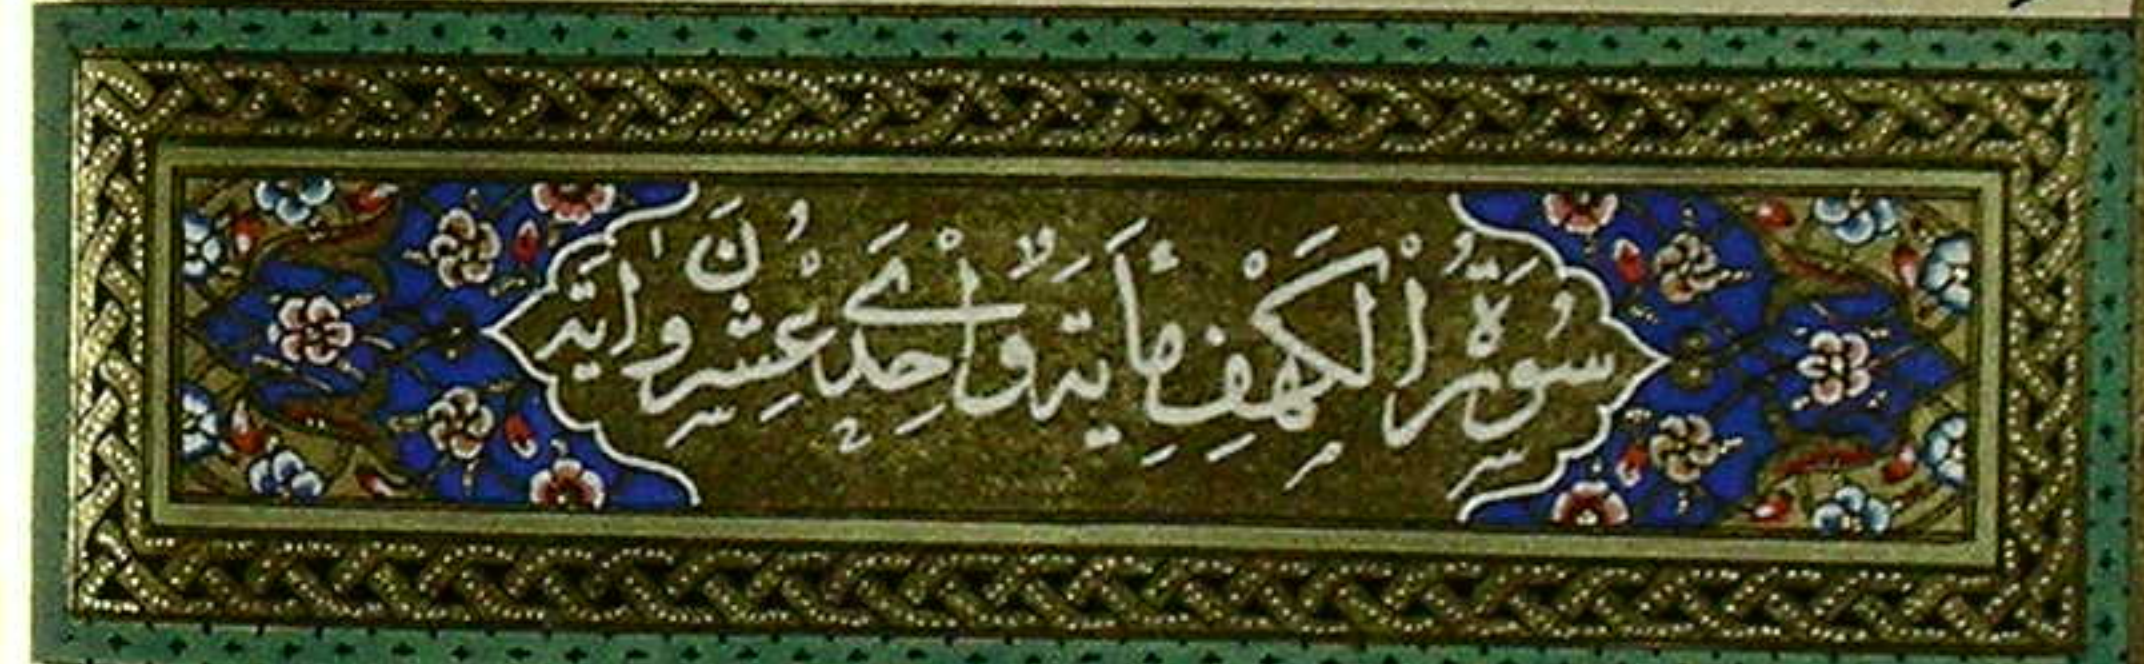 سُورَةُ الْكَهْفِ مِأَيَة وَاِحْدَي عِشْرُونَ اٰيَة